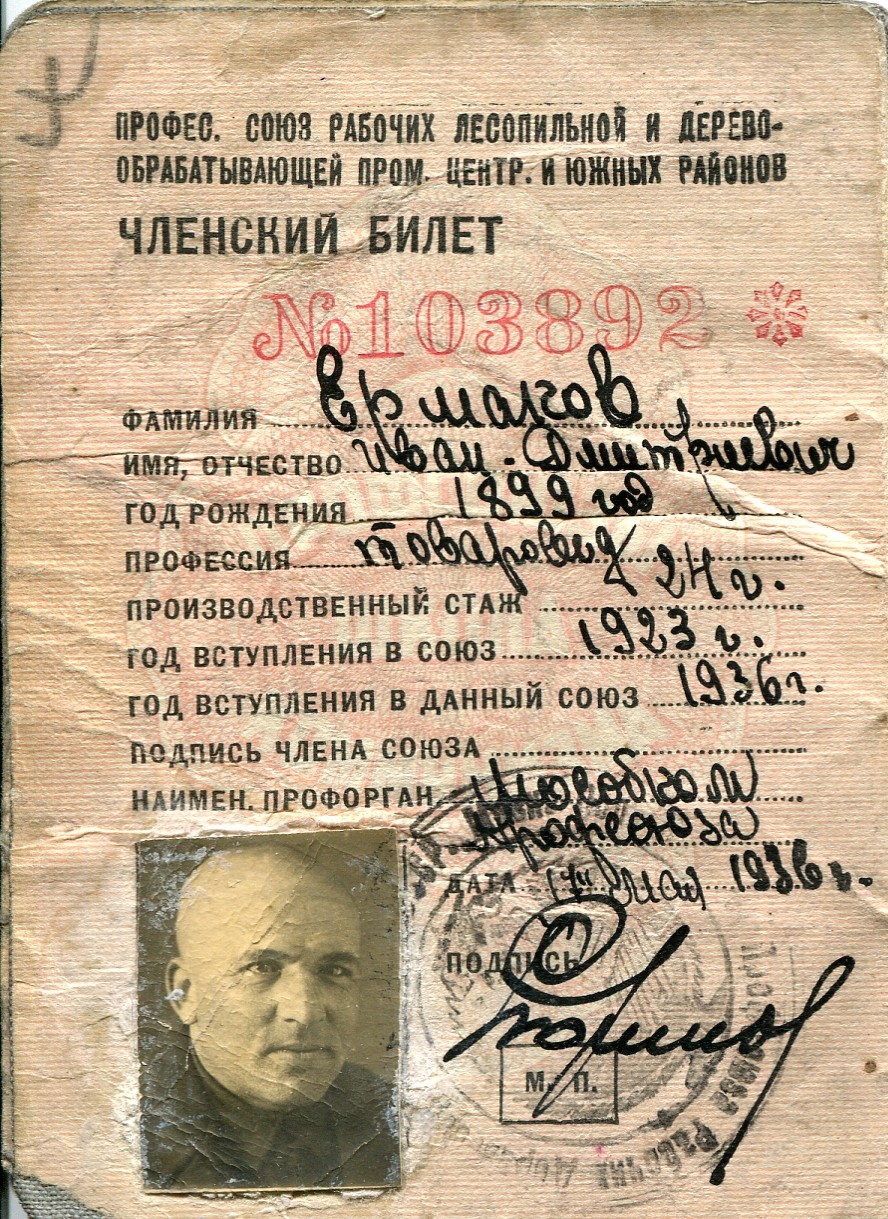 ПРОФЕС. СОЮЗ РАБОЧИХ ЛЕСОПИЛЬНОЙ И ДЕРЕВО-
ОБРАБАТЫВАЮЩЕЙ ПРОМ. ЦЕНТР. И ЮЖНЫХ РАЙОНОВ
ЧЛЕНСКИЙ БИЛЕТ
№ 103892
ФАМИЛИЯ Ермаков
ИМЯ, ОТЧЕСТВО Иван Дмитриевич
ГОД РОЖДЕНИЯ 1899 год
ПРОФЕССИЯ товаровед
ПРОИЗВОДСТВЕННЫЙ СТАЖ 24 г.
ГОД ВСТУПЛЕНИЯ В СОЮЗ 1923 г.
ГОД ВСТУПЛЕНИЯ В ДАННЫЙ СОЮЗ 1936 г.
ПОДПИСЬ ЧЛЕНА СОЮЗА
НАИМЕН. ПРОФОРГАН. Мособком
Профсоюза
ДАТА 17 мая 1936 г.
ПОДПИСЬ
М. П.